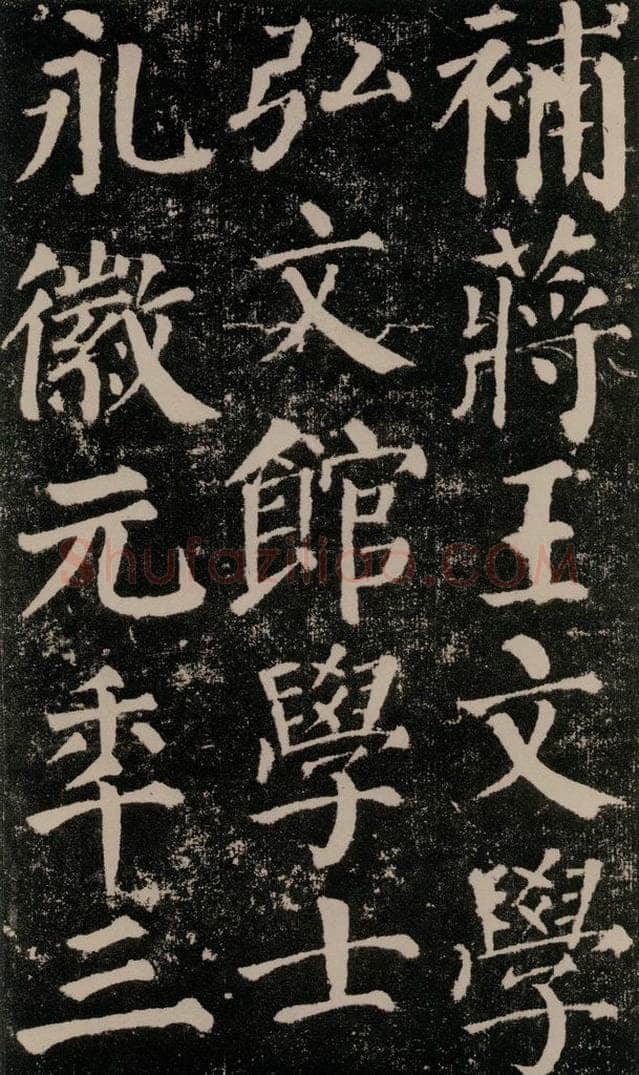 補蔣王文學
弘文館學士
永徽元秊三
Shufaziliao.COM